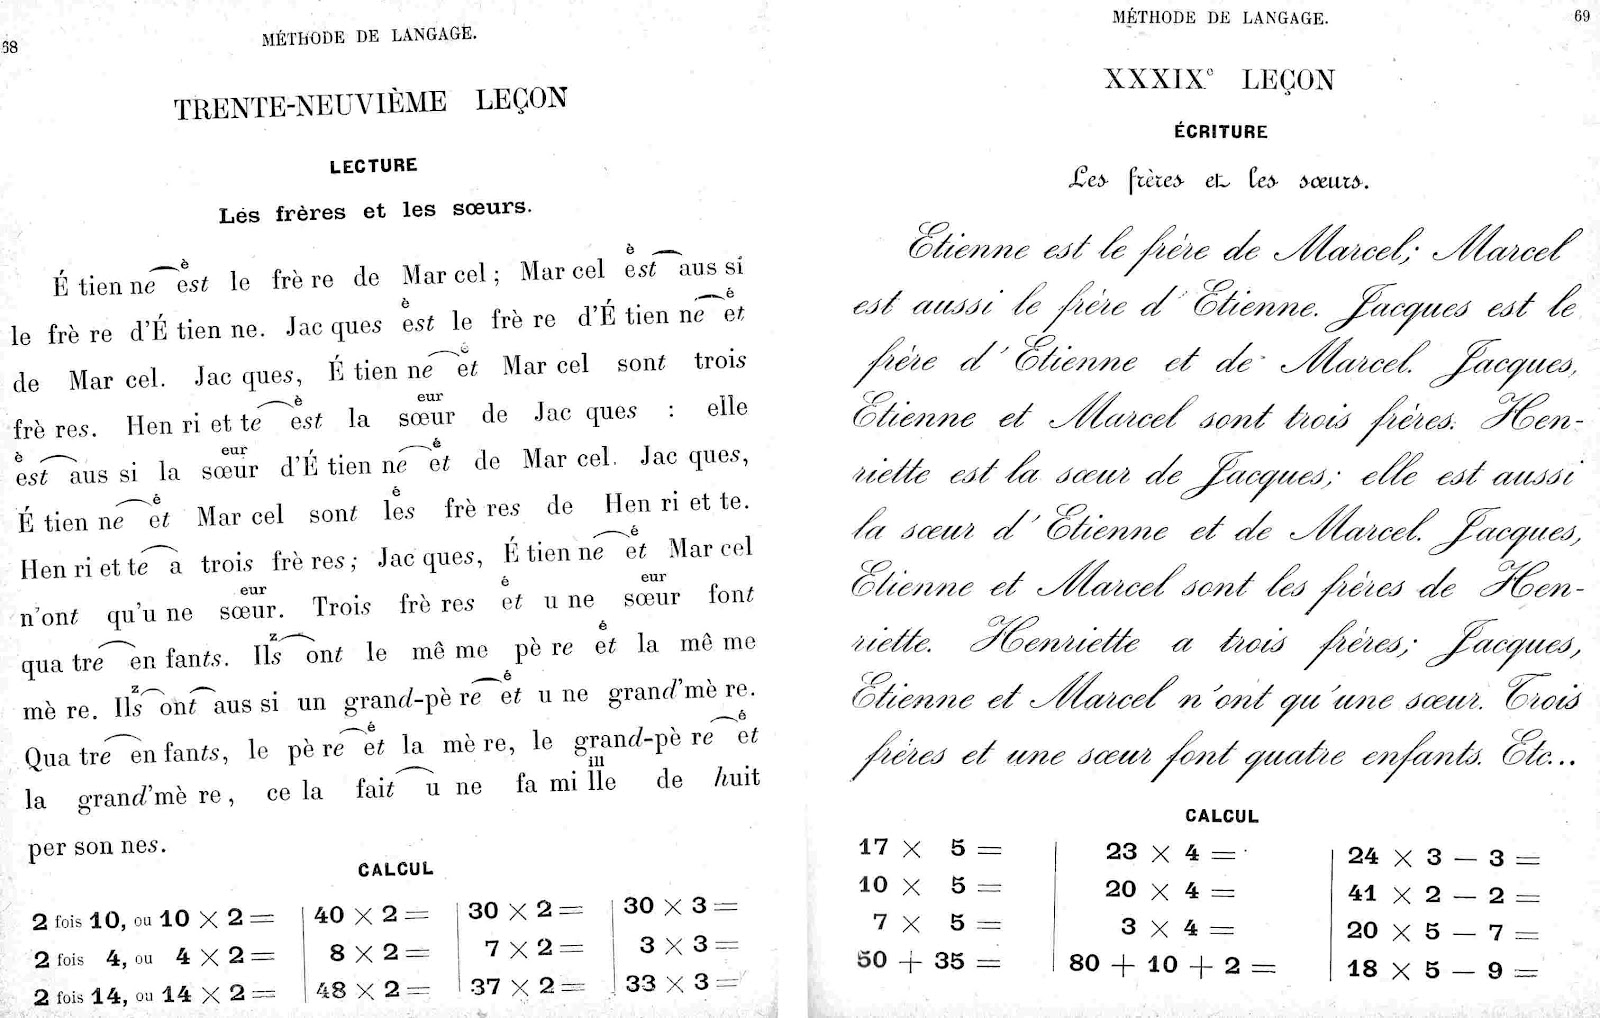 68
MÉTHODE DE LANGAGE.
TRENTE-NEUVIÈME LEÇON
LECTURE
Les frères et les sœurs.
É tien ne est le frè re de Mar cel ; Mar cel est aus si
le frè re d'É tien ne. Jac ques est le frè re d'É tien ne et
de Mar cel. Jac ques, É tien ne et Mar cel sont trois
frè res. Hen ri et te est la sœur de Jac ques : elle
est aus si la sœur d'É tien ne et de Mar cel. Jac ques,
É tien ne et Mar cel sont les frè res de Hen ri et te.
Hen ri et te a trois frè res ; Jac ques, É tien ne et Mar cel
n'ont qu'u ne sœur. Trois frè res et u ne sœur font
qua tre en fants. Ils ont le mê me pè re et la mê me
mè re. Ils ont aus si un grand-pè re et u ne grand'mè re.
Qua tre en fants, le pè re et la mè re, le grand-pè re et
la grand'mè re, ce la fait u ne fa mi lle de huit
per son nes.
CALCUL
2 fois 10, ou 10 × 2 = 40 × 2 = 30 × 2 = 30 × 3 =
2 fois 4, ou 4 × 2 = 8 × 2 = 7 × 2 = 3 × 3 =
2 fois 14, ou 14 × 2 = 48 × 2 = 37 × 2 = 33 × 3 =
MÉTHODE DE LANGAGE.
69
XXXIXe LEÇON
ÉCRITURE
Les frères et les sœurs.
Etienne est le frère de Marcel; Marcel
est aussi le frère d'Etienne. Jacques est le
frère d'Etienne et de Marcel. Jacques,
Etienne et Marcel sont trois frères. Hen-
riette est la sœur de Jacques; elle est aussi
la sœur d'Etienne et de Marcel. Jacques,
Etienne et Marcel sont les frères de Hen-
riette. Henriette a trois frères; Jacques,
Etienne et Marcel n'ont qu'une sœur. Trois
frères et une sœur font quatre enfants. Etc...
CALCUL
17 × 5 = 23 × 4 = 24 × 3 — 3 =
10 × 5 = 20 × 4 = 41 × 2 — 2 =
7 × 5 = 3 × 4 = 20 × 5 — 7 =
50 + 35 = 80 + 10 + 2 = 18 × 5 — 9 =